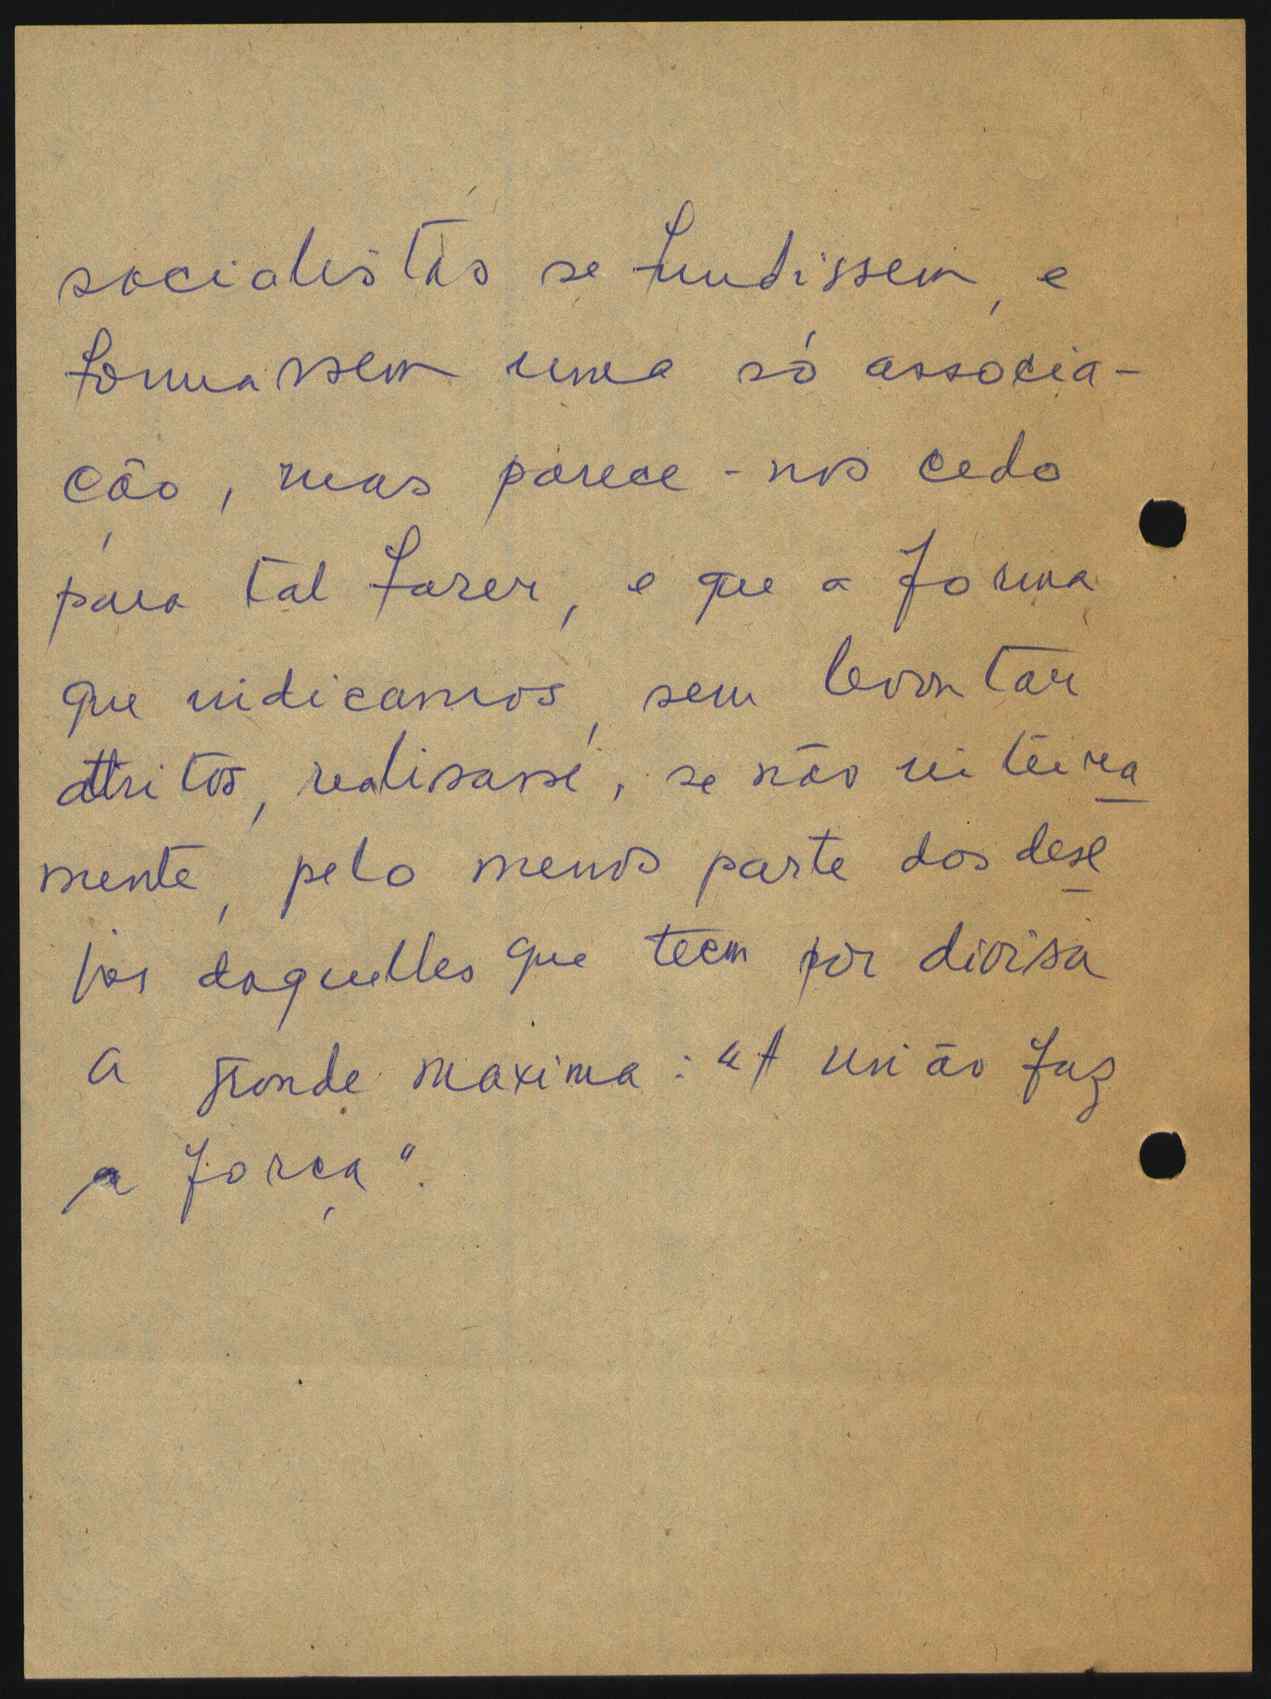 socialistas se fundissem, e
formassem uma só associa-
ção, mas parece-nos cedo
para tal fazer, e que a forma
que indicamos, sem levantar
attritos, realisasse, se não inteira
mente, pelo menos parte dos dese
jos daquelles que teem por divisa
a grande maxima: "A união faz
a força".